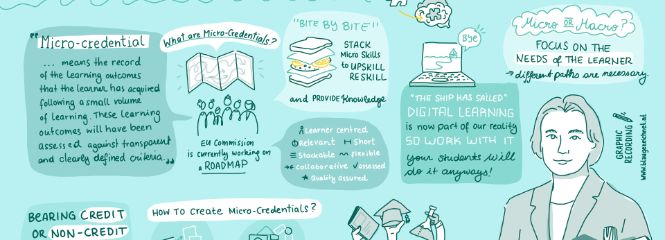 "Micro-credential
... means the record
of the learning outcomes
that the learner has acquired
following a small volume
of learning. These learning
outcomes will have been
assessed against transparent
and clearly defined criteria."
What are Micro-Credentials?
EU Commission
is currently working on
a ROADMAP
"BITE BY BITE"
STACK
Micro Skills
to UPSKILL
RESKILL
and PROVIDE Knowledge
Learner centred
Relevant Short
Stackable flexible
collaborative assessed
Quality assured
Bye
"THE SHIP HAS SAILED"
DIGITAL LEARNING
is now part of our reality
SO WORK WITH IT
your students will
do it anyways!
Micro OR Macro?
FOCUS ON THE
NEEDS OF THE LEARNER
→ different paths are necessary
GRAPHIC
RECORDING
BEARING CREDIT
OR NON-CREDIT
HOW TO CREATE MICRO-CREDENTIALS?